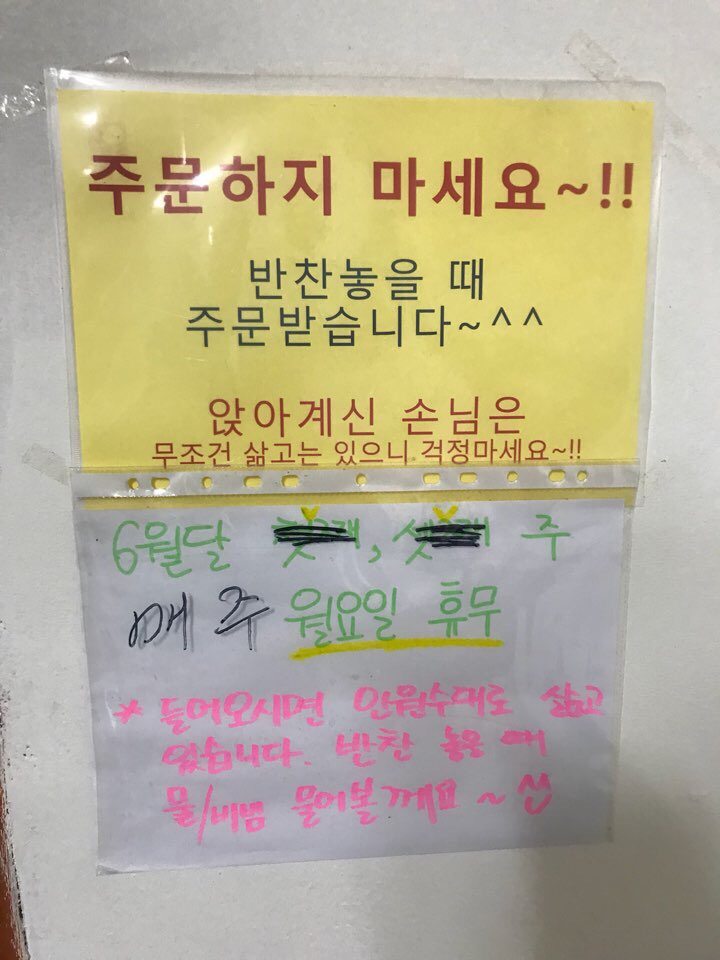 주문하지 마세요~!!
반찬놓을 때
주문받습니다~^^
앉아계신 손님은
무조건 삶고는 있으니 걱정마세요~!!
6월달 첫째, 셋째 주
매 주 월요일 휴무
* 들어오시면 인원수대로 삶고
있습니다. 반찬 놓을 때
물/비빔 물어볼께요~